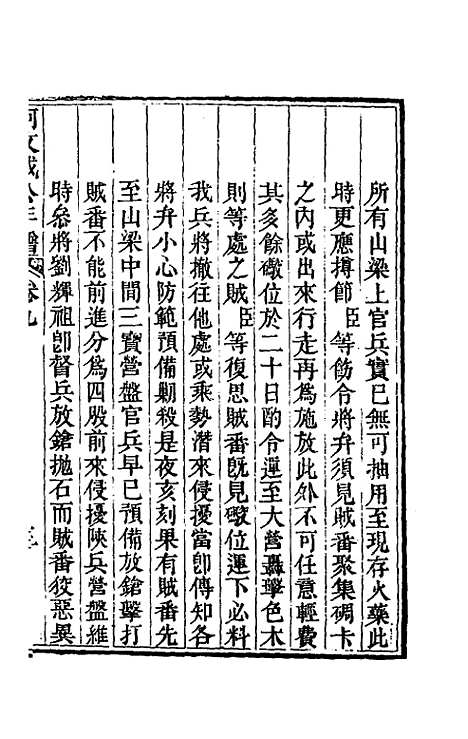 所有山梁上官兵實已無可抽用至現存火藥此
時更應撙節臣等飭令將弁須見賊番聚集碉卡
之內或出來行走再為施放此外不可任意輕費
其多餘礮位於二十日酌令運至大營轟擊色木
則等處之賊臣等復思賊番既見礮位運下必料
我兵將撤往他處或乘勢潛來侵擾當卽傳知各
將弁小心防範預備勦殺是夜亥刻果有賊番先
至山梁中間三寶營盤官兵早已預備放鎗擊打
賊番不能前進分為四股前來侵擾陝兵營盤維
時叅將劉輝祖卽督兵放鎗拋石而賊番狡惡異
阿文成公年譜 卷九